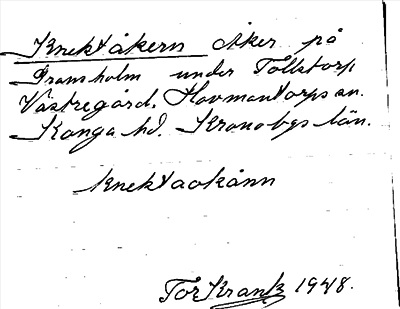 Knektåkern Åker på
Dramsholm under Tollstorp
Västregård. Hovmantorps sn.
Konga hd. Kronobgs län.
knektaokånn
Tor Krantz 1948.